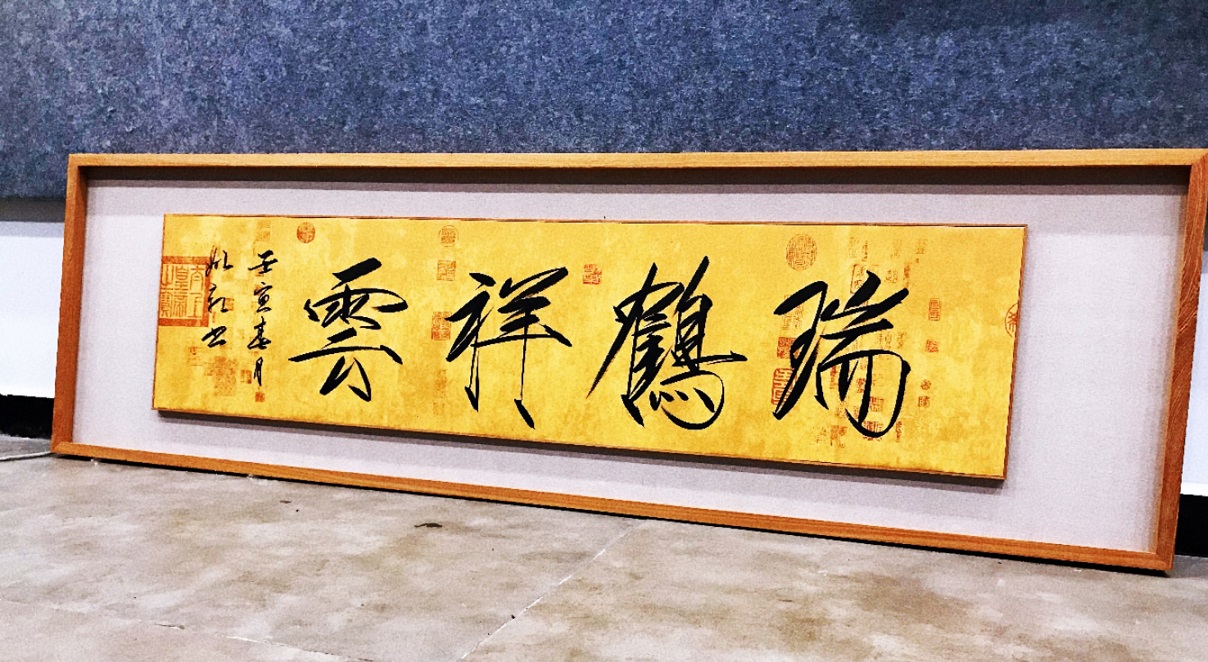 瑞鶴祥雲
壬寅春月